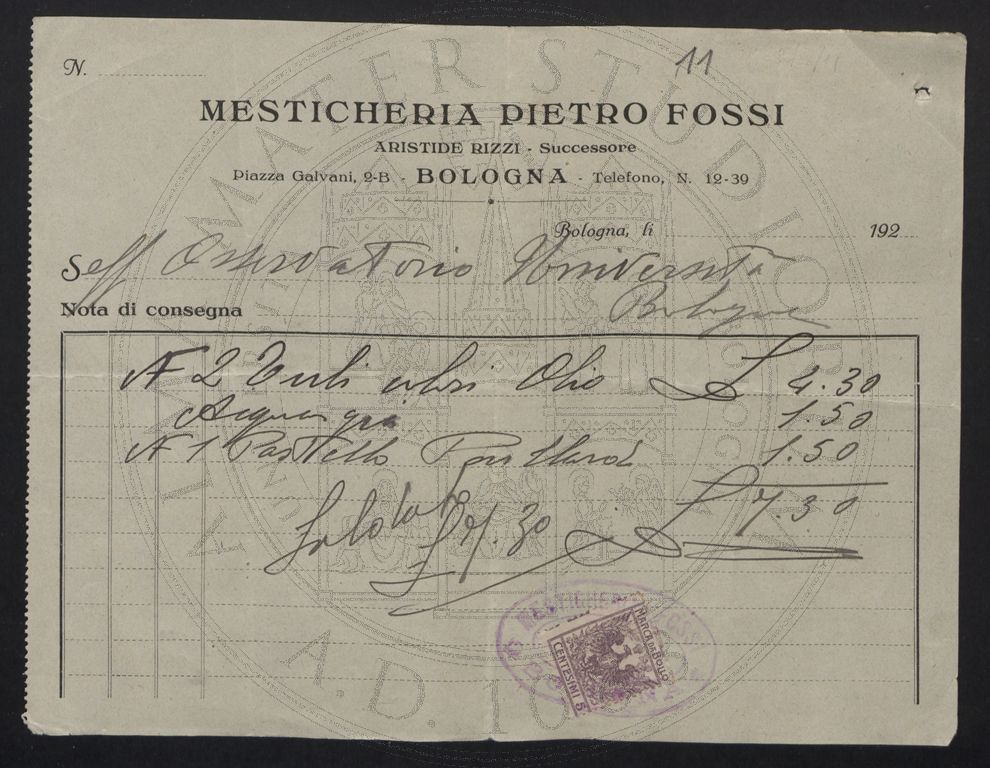 N.
11
MESTICHERIA PIETRO FOSSI
ARISTIDE RIZZI - Successore
Piazza Galvani, 2-B - BOLOGNA - Telefono, N. 12-39
Bologna, lì 192
Osservatorio Università
Bologna
Nota di consegna
N 2 Tubi colori Olio £ 4.30
Acqua 1.50
N 1 Pastello 1.50
£ 7.30
Saldato £ 7.30
MARCA DA BOLLO
CENTESIMI 5
ALMA MATER STUDIORUM
A.D. 10